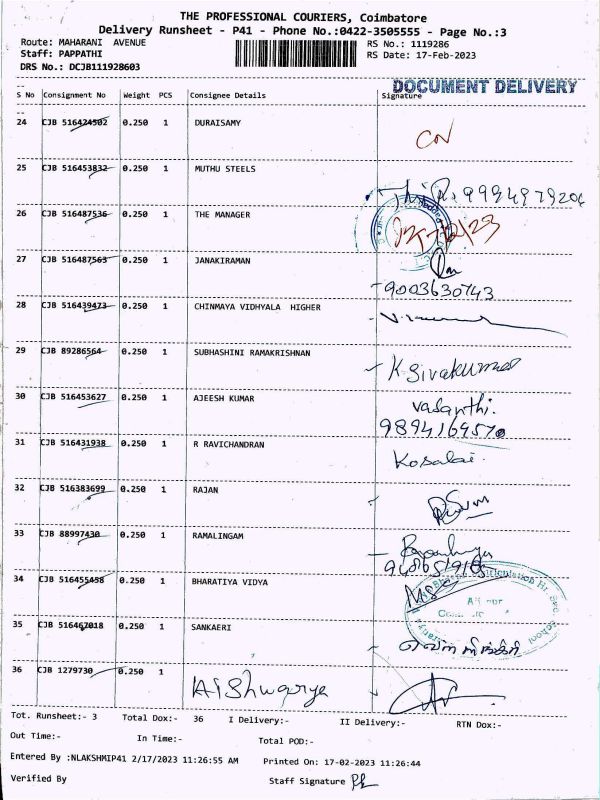 THE PROFESSIONAL COURIERS, Coimbatore
Delivery Runsheet - P41 - Phone No.:0422-3505555 - Page No.:3
Route: MAHARANI AVENUE RS No.: 1119286
Staff: PAPPATHI RS Date: 17-Feb-2023
DRS No.: DCJB111928603
DOCUMENT DELIVERY
S No Consignment No Weight PCS Consignee Details Signature
24 CJB 516424502 0.250 1 DURAISAMY
25 CJB 516453832 0.250 1 MUTHU STEELS
26 CJB 516487536 0.250 1 THE MANAGER
27 CJB 516487563 0.250 1 JANAKIRAMAN
9003630743
28 CJB 516439473 0.250 1 CHINMAYA VIDHYALA HIGHER
29 CJB 89286564 0.250 1 SUBHASHINI RAMAKRISHNAN
K. Sivakumar
30 CJB 516453627 0.250 1 AJEESH KUMAR
Vasanthi.
9894169570
31 CJB 516431938 0.250 1 R RAVICHANDRAN
Kosalai.
32 CJB 516383699 0.250 1 RAJAN
33 CJB 88997430 0.250 1 RAMALINGAM
34 CJB 516455458 0.250 1 BHARATIYA VIDYA
35 CJB 516467018 0.250 1 SANKAERI
36 CJB 1279730 0.250 1 Aishwarya
Tot. Runsheet:- 3 Total Dox:- 36 I Delivery:- II Delivery:- RTN Dox:-
Out Time:- In Time:- Total POD:-
Entered By :NLAKSHMIP41 2/17/2023 11:26:55 AM Printed On: 17-02-2023 11:26:44
Verified By Staff Signature